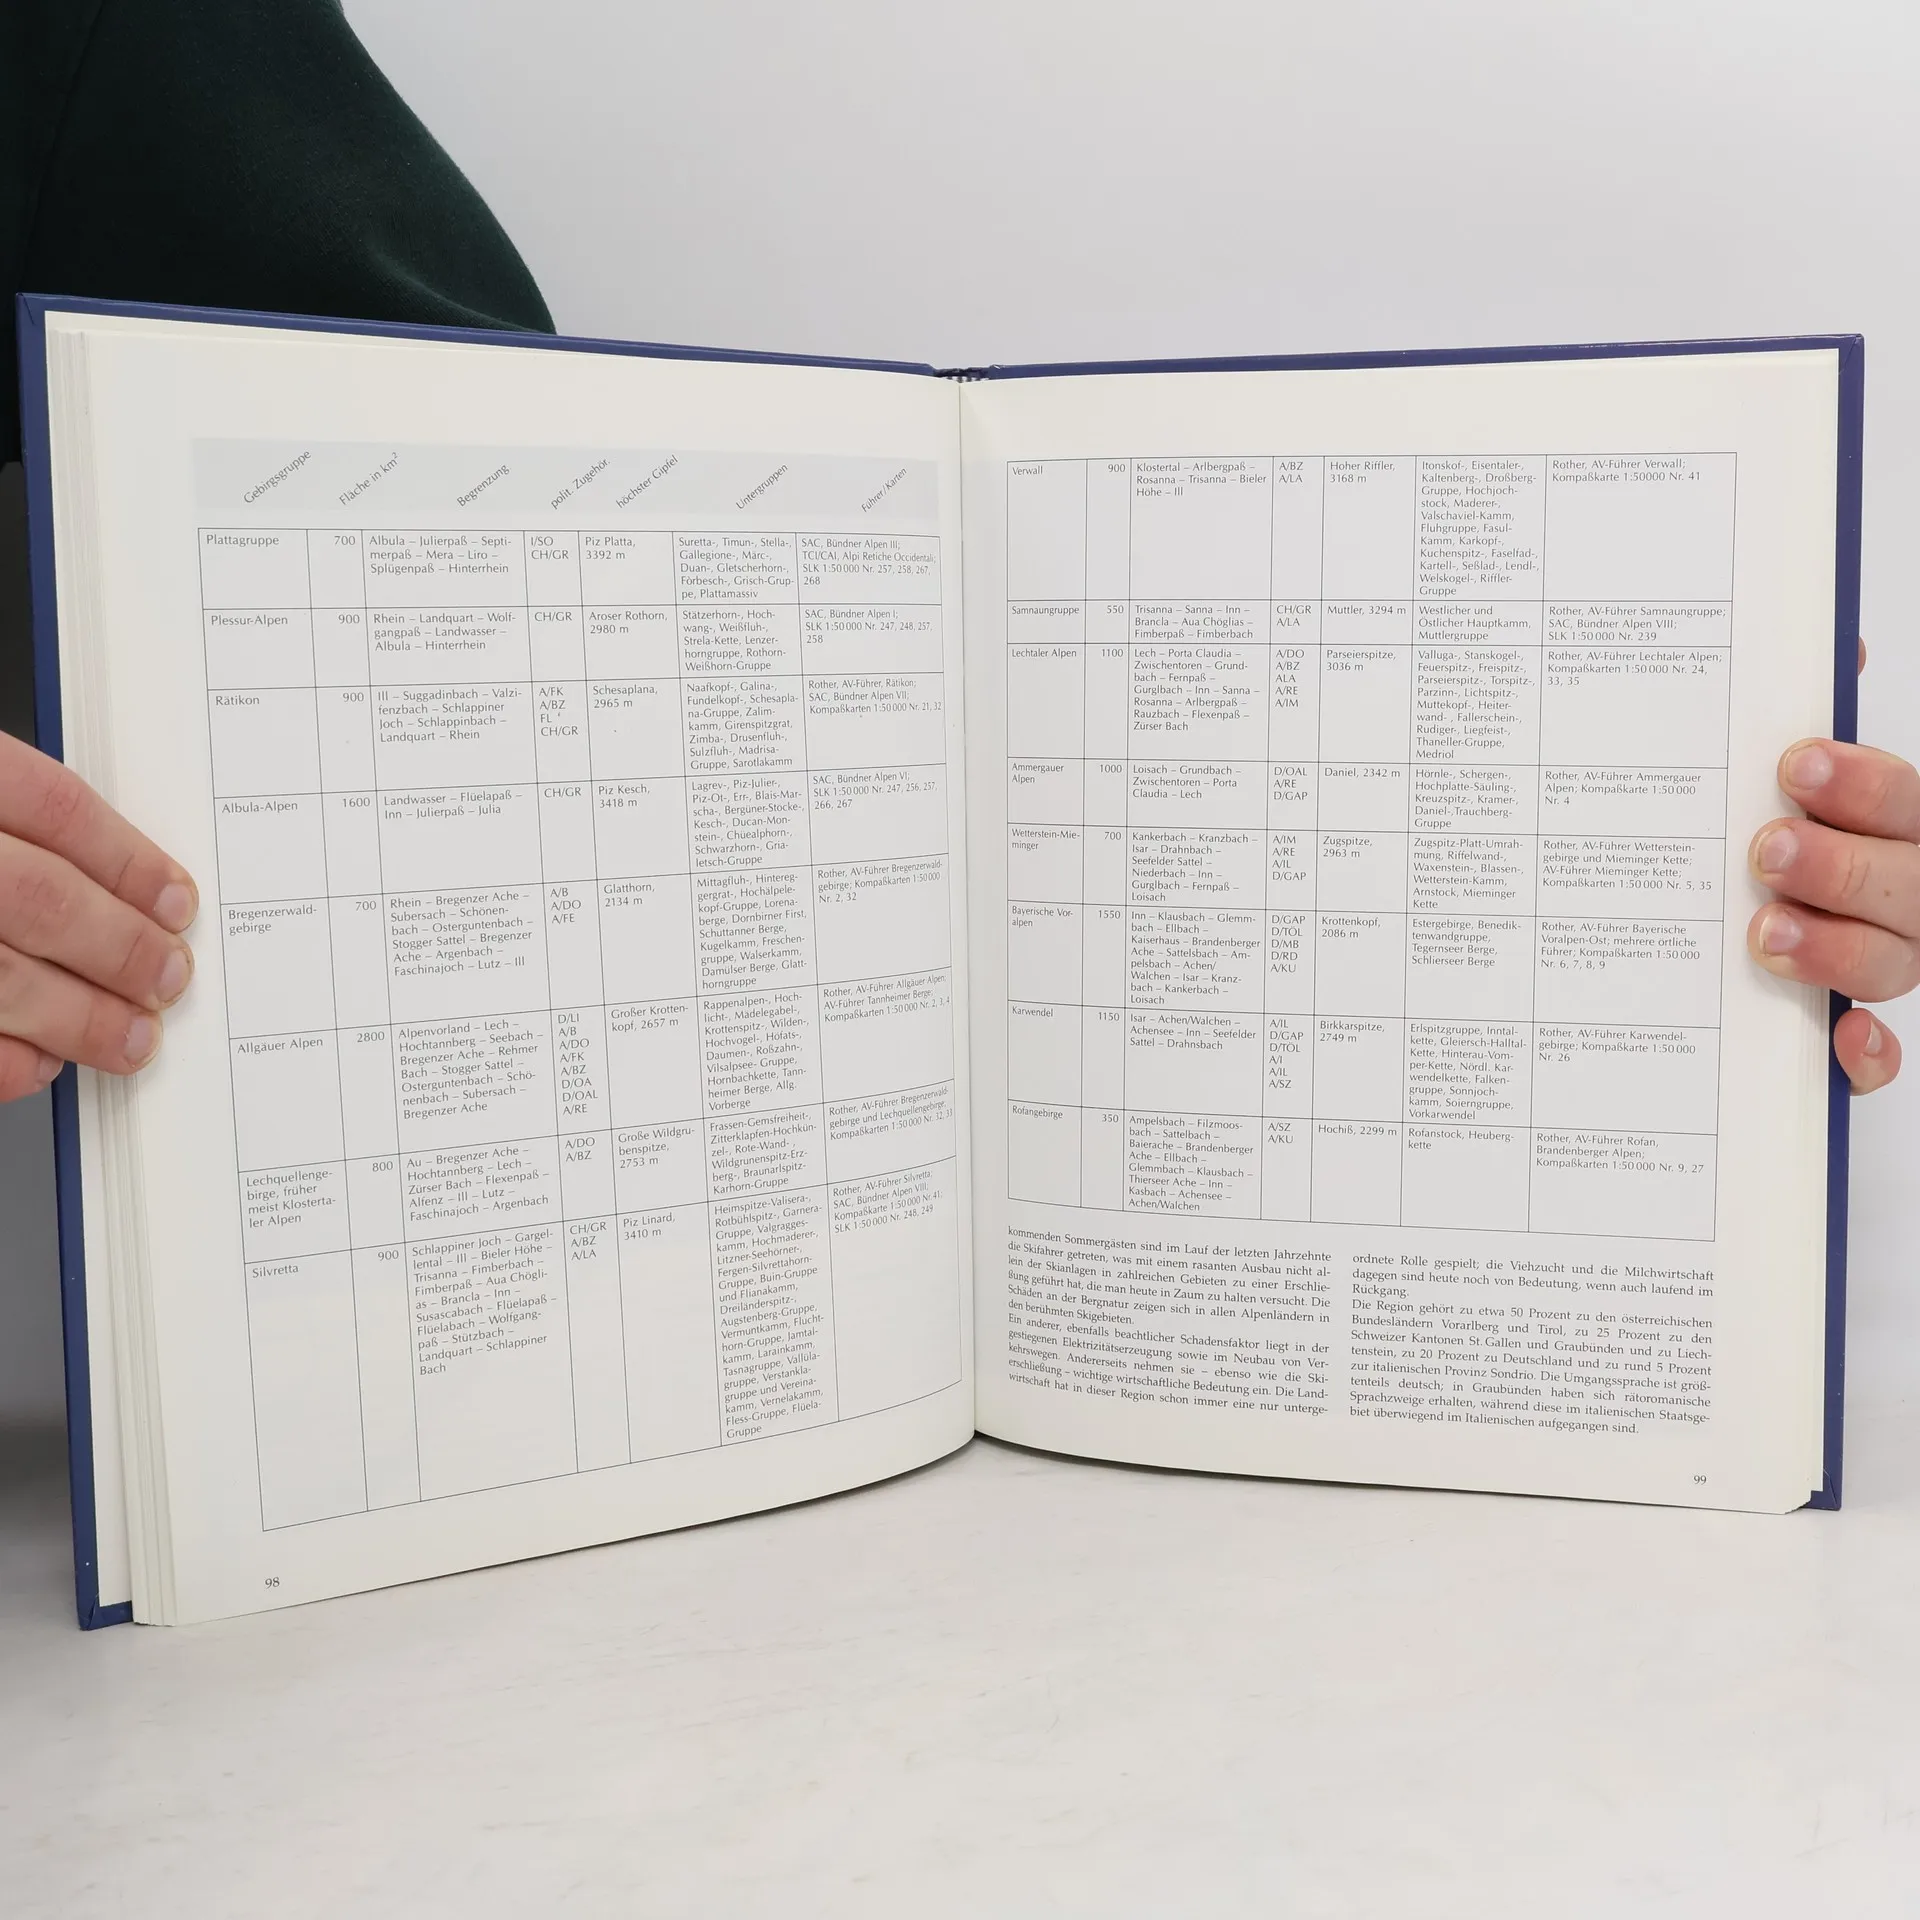 Gebirgsgruppe
Fläche in km²
Begrenzung
polit. Zugehör.
höchster Gipfel
Untergruppen
Führer/Karten
Plattagruppe
700
Albula – Julierpaß – Septi-
merpaß – Mera – Liro –
Splügenpaß – Hinterrhein
I/SO
CH/GR
Piz Platta,
3392 m
Suretta-, Timun-, Stella-,
Gallegione-, Märc-,
Duan-, Gletscherhorn-,
Fòrbesch-, Grisch-Grup-
pe, Plattamassiv
SAC, Bündner Alpen III;
TCI/CAI, Alpi Retiche Occidentali;
SLK 1:50000 Nr. 257, 258, 267,
268
Plessur-Alpen
900
Rhein – Landquart – Wolf-
gangpaß – Landwasser –
Albula – Hinterrhein
CH/GR
Aroser Rothorn,
2980 m
Stätzerhorn-, Hoch-
wang-, Weißfluh-,
Strela-Kette, Lenzer-
horngruppe, Rothorn-
Weißhorn-Gruppe
SAC, Bündner Alpen I;
SLK 1:50000 Nr. 247, 248, 257,
258
Rätikon
900
III – Suggadinbach – Valzi-
fenzbach – Schlappiner
Joch – Schlappinbach –
Landquart – Rhein
A/FK
A/BZ
FL
CH/GR
Schesaplana,
2965 m
Naafkopf-, Galina-,
Fundelkopf-, Schesapla-
na-Gruppe, Zalim-
kamm, Girenspitzgrat,
Zimba-, Drusenfluh-,
Sulzfluh-, Madrisa-
Gruppe, Sarotlakamm
Rother, AV-Führer, Rätikon;
SAC, Bündner Alpen VII;
Kompaßkarten 1:50000 Nr. 21, 32
Albula-Alpen
1600
Landwasser – Flüelapaß –
Inn – Julierpaß – Julia
CH/GR
Piz Kesch,
3418 m
Lagrev-, Piz-Julier-,
Piz-Ot-, Err-, Blais-Mar-
scha-, Bergüner-Stöcke-,
Kesch-, Ducan-Mon-
stein-, Chüealphorn-,
Schwarzhorn-, Gria-
letsch-Gruppe
SAC, Bündner Alpen VI;
SLK 1:50000 Nr. 247, 256, 257,
266, 267
Bregenzerwald-
gebirge
700
Rhein – Bregenzer Ache –
Subersach – Schönen-
bach – Osterguntenbach –
Stogger Sattel – Bregenzer
Ache – Argenbach –
Faschinajoch – Lutz – III
A/B
A/DO
A/FE
Glatthorn,
2134 m
Mittagfluh-, Hintereg-
gergrat-, Hochälpele-
kopf-Gruppe, Lorena-
berge, Dornbirner First,
Schuttanner Berge,
Kugelkamm, Freschen-
gruppe, Walserkamm,
Damülser Berge, Glatt-
horngruppe
Rother, AV-Führer Bregenzerwald-
gebirge; Kompaßkarten 1:50000
Nr. 2, 32
Allgäuer Alpen
2800
Alpenvorland – Lech –
Hochtannberg – Seebach –
Bregenzer Ache – Rehmer
Bach – Stogger Sattel –
Osterguntenbach – Schö-
nenbach – Subersach –
Bregenzer Ache
D/LI
A/B
A/DO
A/FK
A/BZ
D/OA
D/OAL
A/RE
Großer Krotten-
kopf, 2657 m
Rappenalpen-, Hoch-
licht-, Mädelegabel-,
Krottenspitz-, Wilden-,
Hochvogel-, Höfats-,
Daumen-, Roßzahn-,
Vilsalpsee- Gruppe,
Hornbachkette, Tann-
heimer Berge, Allg.
Vorberge
Rother, AV-Führer Allgäuer Alpen;
AV-Führer Tannheimer Berge,
Kompaßkarten 1:50000 Nr. 2, 3, 4
Lechquellenge-
birge, früher
meist Klosterta-
ler Alpen
800
Au – Bregenzer Ache –
Hochtannberg – Lech –
Zürser Bach – Flexenpaß –
Alfenz – III – Lutz –
Faschinajoch – Argenbach
A/DO
A/BZ
Große Wildgru-
benspitze,
2753 m
Frassen-Gemsfreiheit-,
Zitterklapfen-Hochkün-
zel-, Rote-Wand- ,
Wildgrunenspitz-Erz-
berg-, Braunarlspitz-
Karhorn-Gruppe
Rother, AV-Führer Bregenzerwald-
gebirge und Lechquellengebirge,
Kompaßkarten 1:50000 Nr. 32, 33
Silvretta
900
Schlappiner Joch – Gargel-
lental – III – Bieler Höhe –
Trisanna – Fimberbach –
Fimberpaß – Aua Chögli-
as – Brancla – Inn –
Susascabach – Flüelapaß –
Flüelabach – Wolfgang-
paß – Stützbach –
Landquart – Schlappiner
Bach
CH/GR
A/BZ
A/LA
Piz Linard,
3410 m
Heimspitze-Valisera-,
Rotbühlspitz-, Garnera-
Gruppe, Valgragges-
kamm, Hochmaderer-,
Litzner-Seehörner-,
Fergen-Silvrettahorn-
Gruppe, Buin-Gruppe
und Flianakamm,
Dreiländerspitz-,
Augstenberg-Gruppe,
Vermuntkamm, Flucht-
horn-Gruppe, Jamtal-
kamm, Larainkamm,
Tasnagruppe, Vallüla-
gruppe, Verstankla-
gruppe und Vereina-
kamm, Vernelakamm,
Fless-Gruppe, Flüela-
Gruppe
Rother, AV-Führer Silvretta;
SAC, Bündner Alpen VIII;
Kompaßkarte 1:50000 Nr.41;
SLK 1:50000 Nr. 248, 249
98
Verwall
900
Klostertal – Arlbergpaß –
Rosanna – Trisanna – Bieler
Höhe – III
A/BZ
A/LA
Hoher Riffler,
3168 m
Itonskof-, Eisentaler-,
Kaltenberg-, Droßberg-
Gruppe, Hochjoch-
stock, Maderer-,
Valschaviel-Kamm,
Fluhgruppe, Fasul-
Kamm, Karkopf-,
Kuchenspitz-, Faselfad-,
Kartell-, Seßlad-, Lendl-,
Welskogel-, Riffler-
Gruppe
Rother, AV-Führer Verwall;
Kompaßkarte 1:50000 Nr. 41
Samnaungruppe
550
Trisanna – Sanna – Inn –
Brancla – Aua Chöglias –
Fimberpaß – Fimberbach
CH/GR
A/LA
Muttler, 3294 m
Westlicher und
Östlicher Hauptkamm,
Muttlergruppe
Rother, AV-Führer Samnaungruppe;
SAC, Bündner Alpen VIII;
SLK 1:50000 Nr. 239
Lechtaler Alpen
1100
Lech – Porta Claudia –
Zwischentoren – Grund-
bach – Fernpaß –
Gurglbach – Inn – Sanna –
Rosanna – Arlbergpaß –
Rauzbach – Flexenpaß –
Zürser Bach
A/DO
A/BZ
ALA
A/RE
A/IM
Parseierspitze,
3036 m
Valluga-, Stanskogel-,
Feuerspitz-, Freispitz-,
Parseierspitz-, Torspitz-,
Parzinn-, Lichtspitz-,
Muttekopf-, Heiter-
wand- , Fallerschein-,
Rudiger-, Liegfeist-,
Thaneller-Gruppe,
Medriol
Rother, AV-Führer Lechtaler Alpen;
Kompaßkarten 1:50000 Nr. 24,
33, 35
Ammergauer
Alpen
1000
Loisach – Grundbach –
Zwischentoren – Porta
Claudia – Lech
D/OAL
A/RE
D/GAP
Daniel, 2342 m
Hörnle-, Schergen-,
Hochplatte-Säuling-,
Kreuzspitz-, Kramer-,
Daniel-,Trauchberg-
Gruppe
Rother, AV-Führer Ammergauer
Alpen; Kompaßkarte 1:50000
Nr. 4
Wetterstein-Mie-
minger
700
Kankerbach – Kranzbach –
Isar – Drahnbach –
Seefelder Sattel –
Niederbach – Inn –
Gurglbach – Fernpaß –
Loisach
A/IM
A/RE
A/IL
D/GAP
Zugspitze,
2963 m
Zugspitz-Platt-Umrah-
mung, Riffelwand-,
Waxenstein-, Blassen-,
Wetterstein-Kamm,
Arnstock, Mieminger
Kette
Rother, AV-Führer Wetterstein-
gebirge und Mieminger Kette;
AV-Führer Mieminger Kette;
Kompaßkarten 1:50000 Nr. 5, 35
Bayerische Vor-
alpen
1550
Inn – Klausbach – Glemm-
bach – Ellbach –
Kaiserhaus – Brandenberger
Ache – Sattelsbach – Am-
pelsbach – Achen/
Walchen – Isar – Kranz-
bach – Kankerbach –
Loisach
D/GAP
D/TÖL
D/MB
D/RD
A/KU
Krottenkopf,
2086 m
Estergebirge, Benedik-
tenwandgruppe,
Tegernseer Berge,
Schlierseer Berge
Rother, AV-Führer Bayerische
Voralpen-Ost; mehrere örtliche
Führer; Kompaßkarten 1:50000
Nr. 6, 7, 8, 9
Karwendel
1150
Isar – Achen/Walchen –
Achensee – Inn – Seefelder
Sattel – Drahnsbach
A/IL
D/GAP
D/TÖL
A/I
A/IL
A/SZ
Birkkarspitze,
2749 m
Erlspitzgruppe, Inntal-
kette, Gleiersch-Halltal-
Kette, Hinterau-Vom-
per-Kette, Nördl. Kar-
wendelkette, Falken-
gruppe, Sonnjoch-
kamm, Soierngruppe,
Vorkarwendel
Rother, AV-Führer Karwendel-
gebirge; Kompaßkarte 1:50000
Nr. 26
Rofangebirge
350
Ampelsbach – Filzmoos-
bach – Sattelbach –
Baierache – Brandenberger
Ache – Ellbach –
Glemmbach – Klausbach –
Thierseer Ache – Inn –
Kasbach – Achensee –
Achen/Walchen
A/SZ
A/KU
Hochiß, 2299 m
Rofanstock, Heuberg-
kette
Rother, AV-Führer Rofan,
Brandenberger Alpen;
Kompaßkarten 1:50000 Nr. 9, 27
kommenden Sommergästen sind im Lauf der letzten Jahrzehnte
die Skifahrer getreten, was mit einem rasanten Ausbau nicht al-
lein der Skianlagen in zahlreichen Gebieten zu einer Erschlie-
ßung geführt hat, die man heute in Zaum zu halten versucht. Die
Schäden an der Bergnatur zeigen sich in allen Alpenländern in
den berühmten Skigebieten.
Ein anderer, ebenfalls beachtlicher Schadensfaktor liegt in der
gestiegenen Elektrizitätserzeugung sowie im Neubau von Ver-
kehrswegen. Andererseits nehmen sie – ebenso wie die Ski-
erschließung – wichtige wirtschaftliche Bedeutung ein. Die Land-
wirtschaft hat in dieser Region schon immer eine nur unterge-
ordnete Rolle gespielt; die Viehzucht und die Milchwirtschaft
dagegen sind heute noch von Bedeutung, wenn auch laufend im
Rückgang.
Die Region gehört zu etwa 50 Prozent zu den österreichischen
Bundesländern Vorarlberg und Tirol, zu 25 Prozent zu den
Schweizer Kantonen St. Gallen und Graubünden und zu Liech-
tenstein, zu 20 Prozent zu Deutschland und zu rund 5 Prozent
zur italienischen Provinz Sondrio. Die Umgangssprache ist größ-
tenteils deutsch; in Graubünden haben sich rätoromanische
Sprachzweige erhalten, während diese im italienischen Staatsge-
biet überwiegend im Italienischen aufgegangen sind.
99